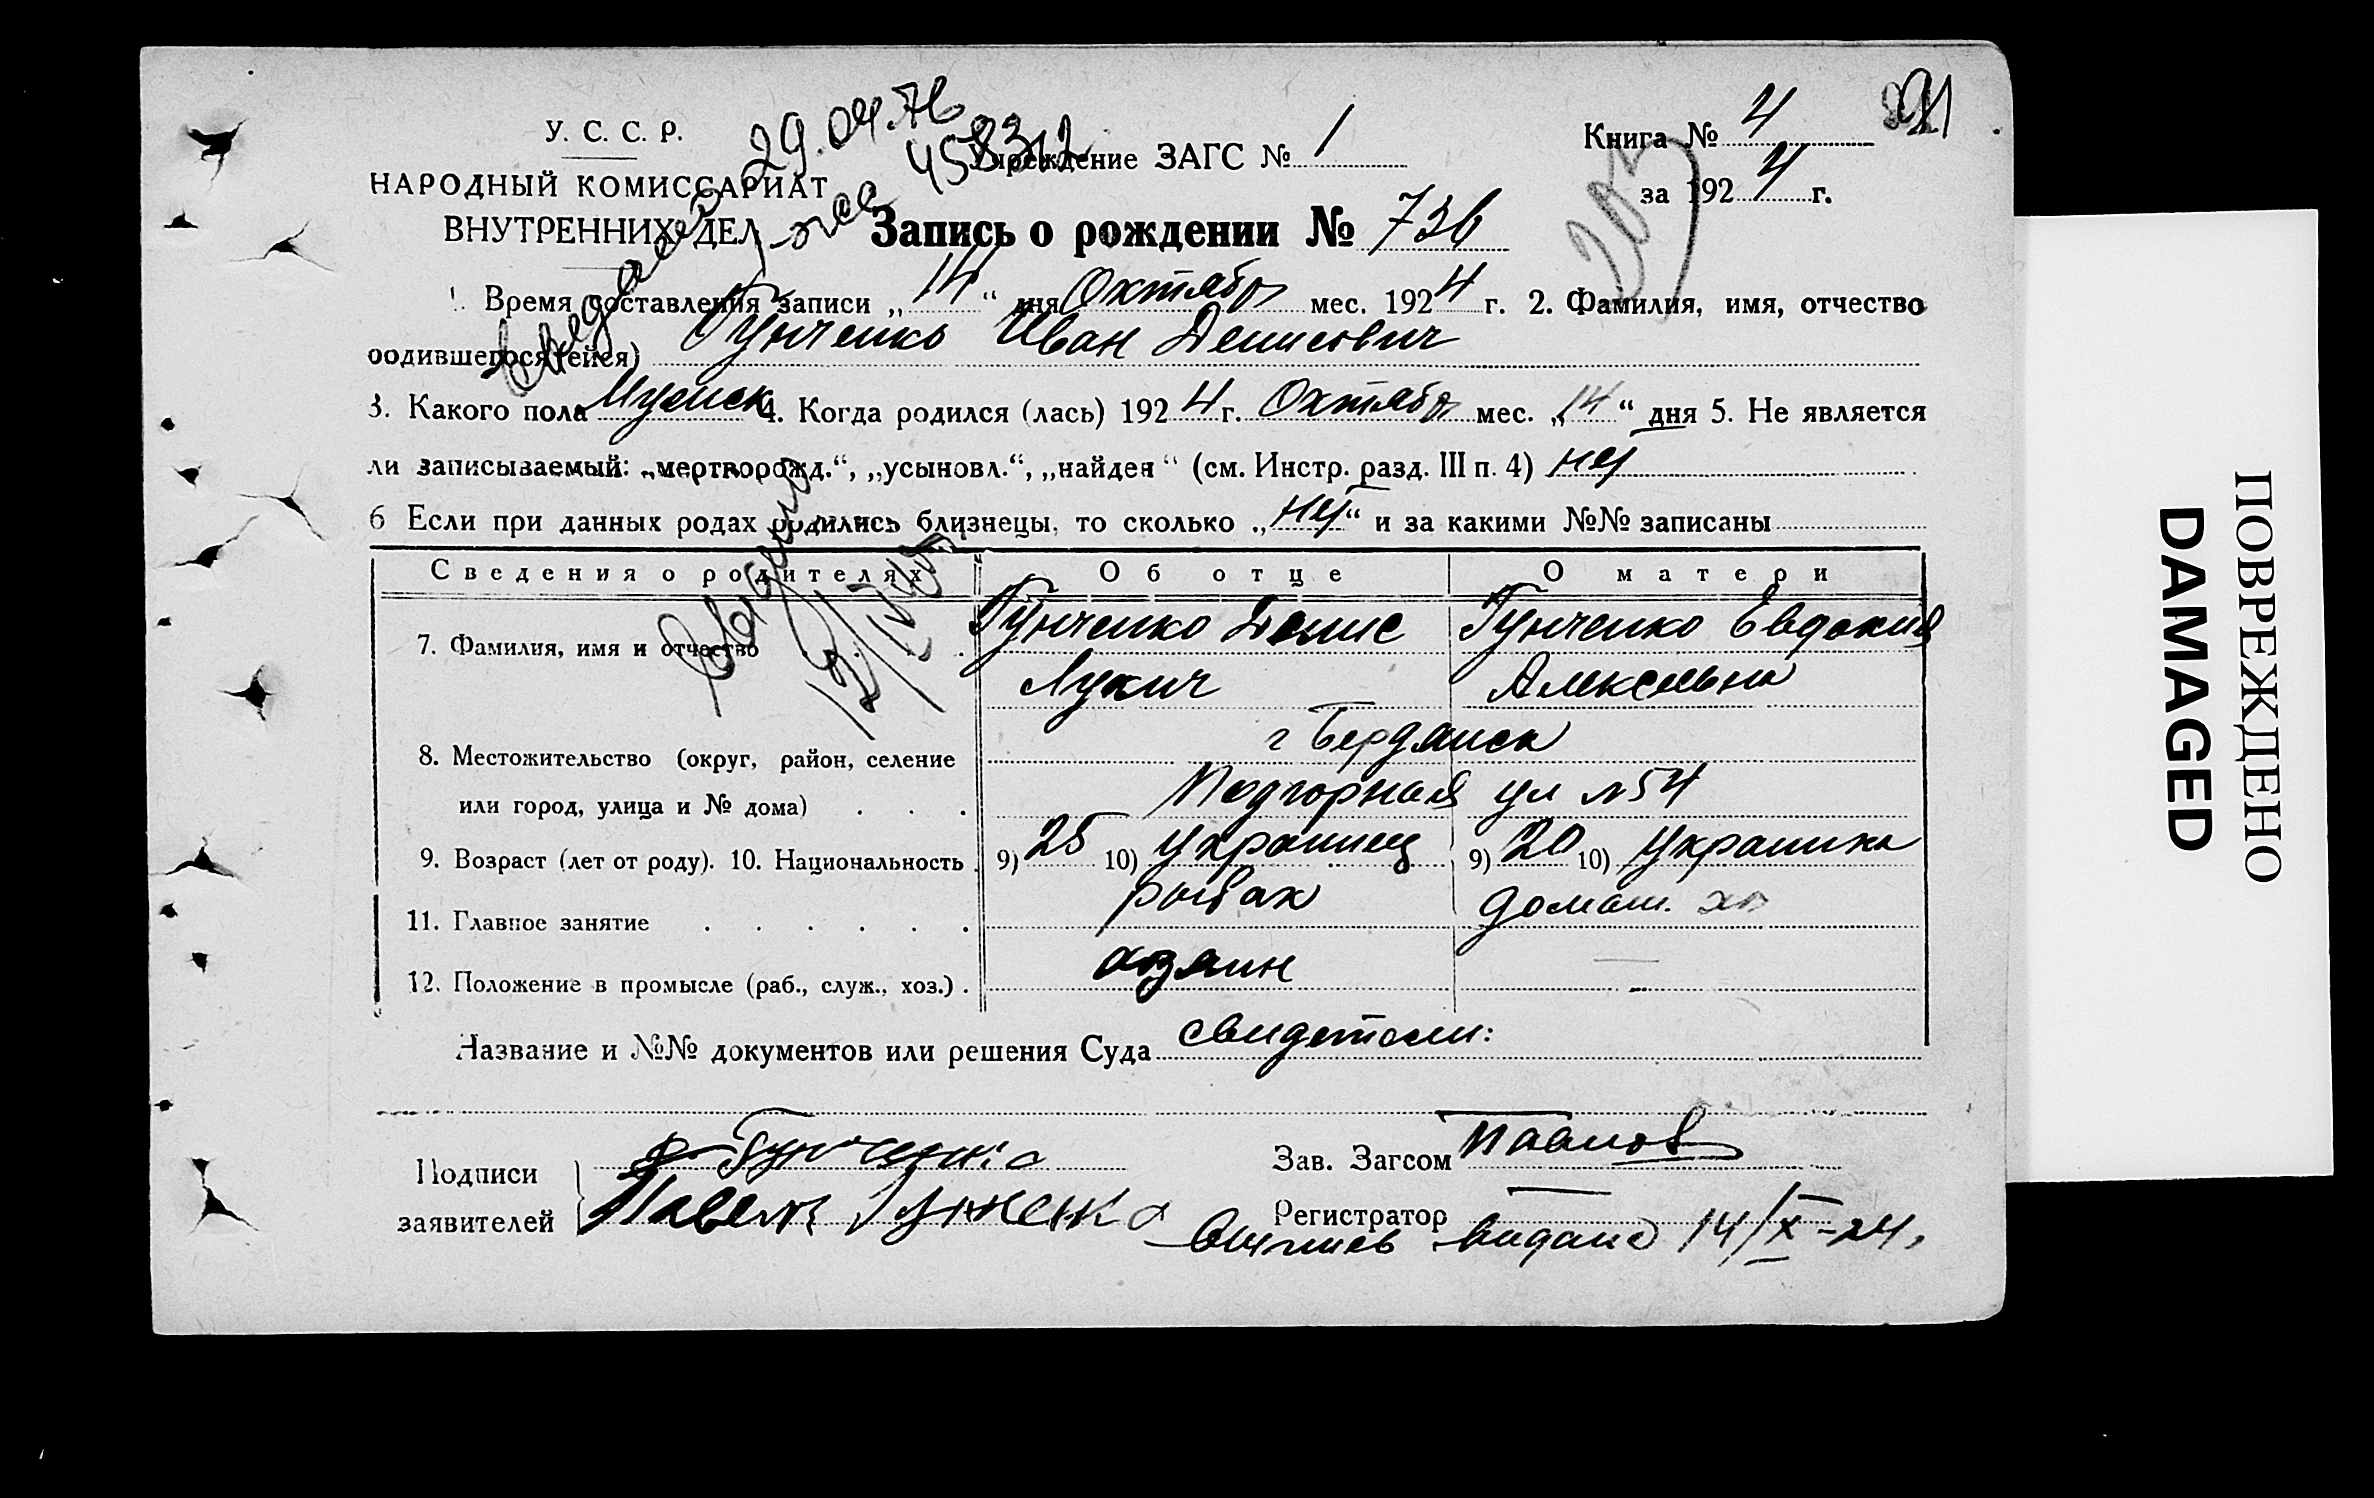 У. С. С. Р.
НАРОДНЫЙ КОМИССАРИАТ
ВНУТРЕННИХ ДЕЛ
29.04.76
458312
Учреждение ЗАГС № 1
Книга № 4
за 1924 г.
Запись о рождении № 736
1. Время составления записи „14“ дня Октябр мес. 1924 г. 2. Фамилия, имя, отчество
родившегося(ейся) Гунченко Иван Денисович
3. Какого пола Мужск 4. Когда родился (лась) 1924 г. Октябр мес. „14“ дня 5. Не является
ли записываемый: „мертворожд.“, „усыновл.“, „найден“ (см. Инстр. разд. III п. 4) нет
6 Если при данных родах родились близнецы, то сколько „нет“ и за какими №№ записаны
Сведения о родителях Об отце О матери
7. Фамилия, имя и отчество Гунченко Денис Гунченко Евдокия
Лукич Алексеевна
8. Местожительство (округ, район, селение г Бердянск
или город, улица и № дома) Подгорная ул №54
9. Возраст (лет от роду). 10. Национальность 9) 25 10) украинец 9) 20 10) украинка
11. Главное занятие рыбак домаш. хоз
12. Положение в промысле (раб., служ., хоз.) хозяин —
Название и №№ документов или решения Суда свидетели:
Подписи Гунченко Зав. Загсом Павлов
заявителей Павел Гунченко Регистратор
выдано 14/X-24.
ПОВРЕЖДЕНО
DAMAGED